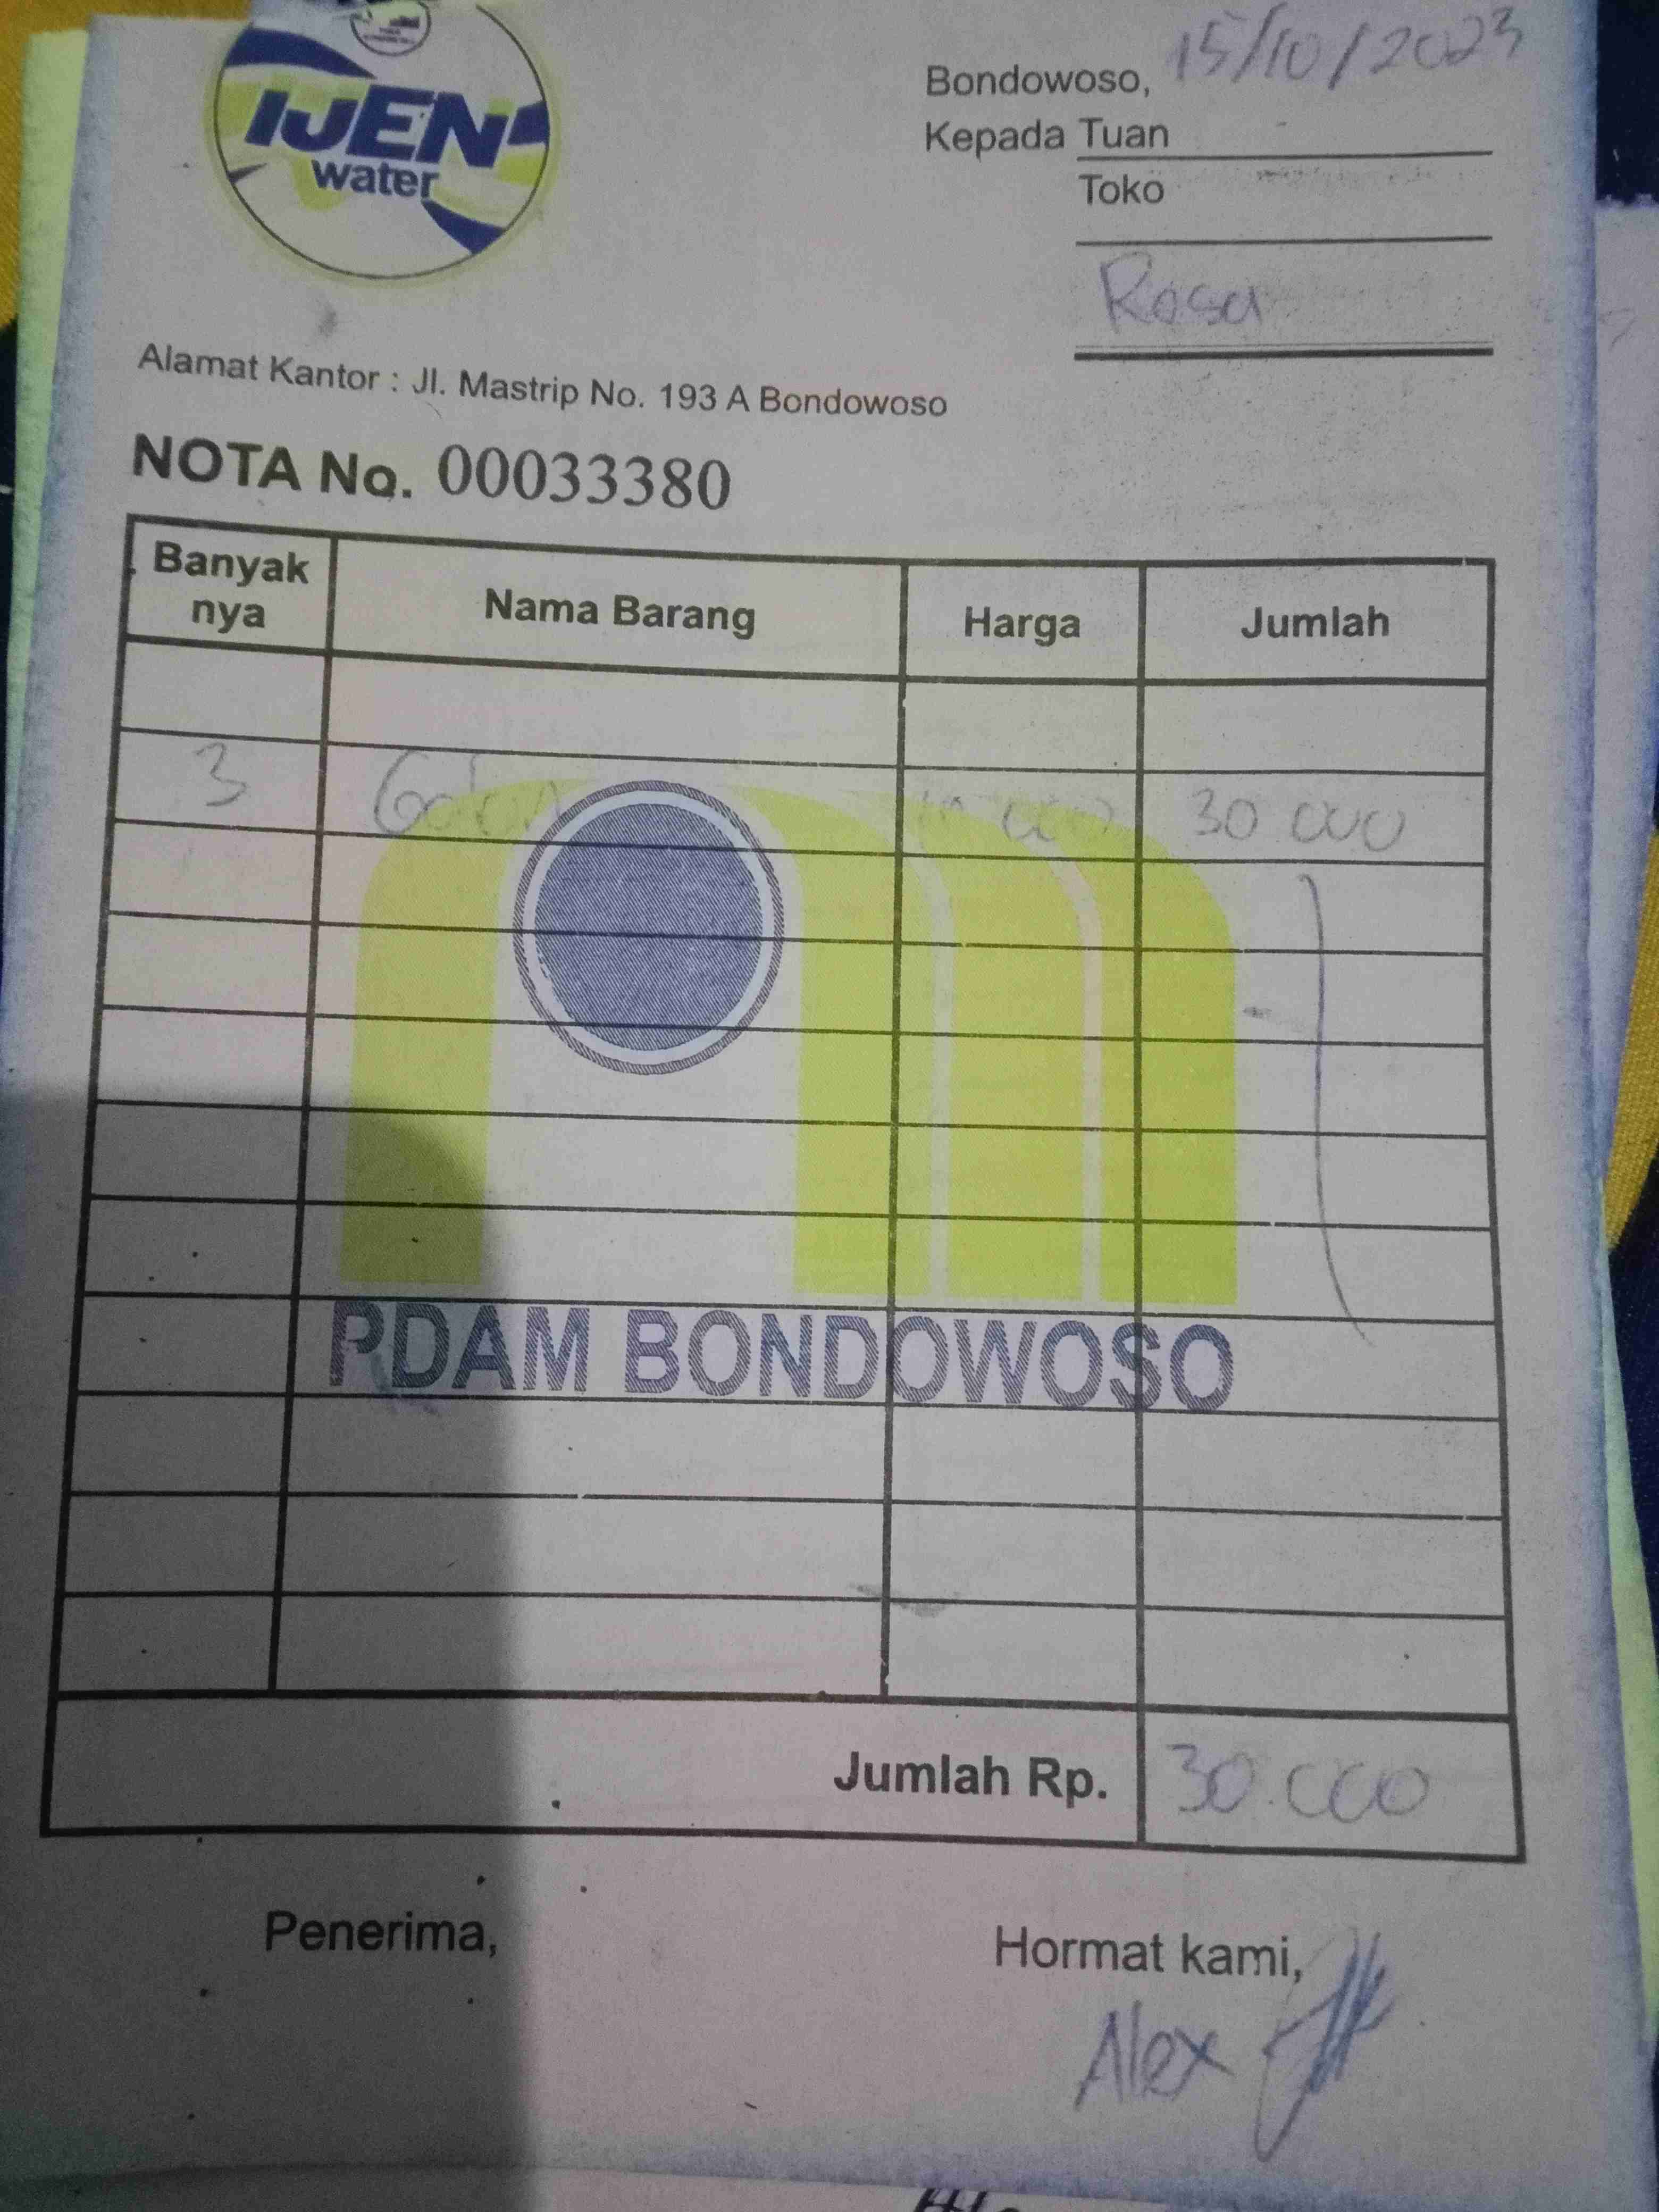 IJEN
water
Bondowoso, 15/10/2023
Kepada Tuan
Toko
Rosa
Alamat Kantor : Jl. Mastrip No. 193 A Bondowoso
NOTA No. 00033380
Banyak nya Nama Barang Harga Jumlah
3 Galon 10 000 30 000
PDAM BONDOWOSO
Jumlah Rp. 30.000
Penerima, Hormat kami,
Alex